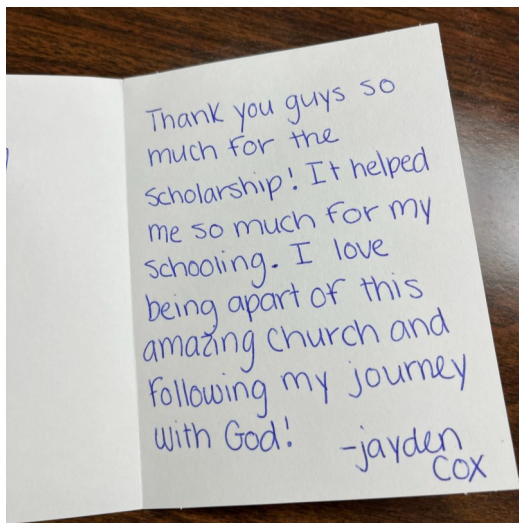 Thank you guys so
much for the
scholarship! It helped
me so much for my
schooling. I love
being apart of this
amazing church and
following my journey
with God!
-jayden
cox